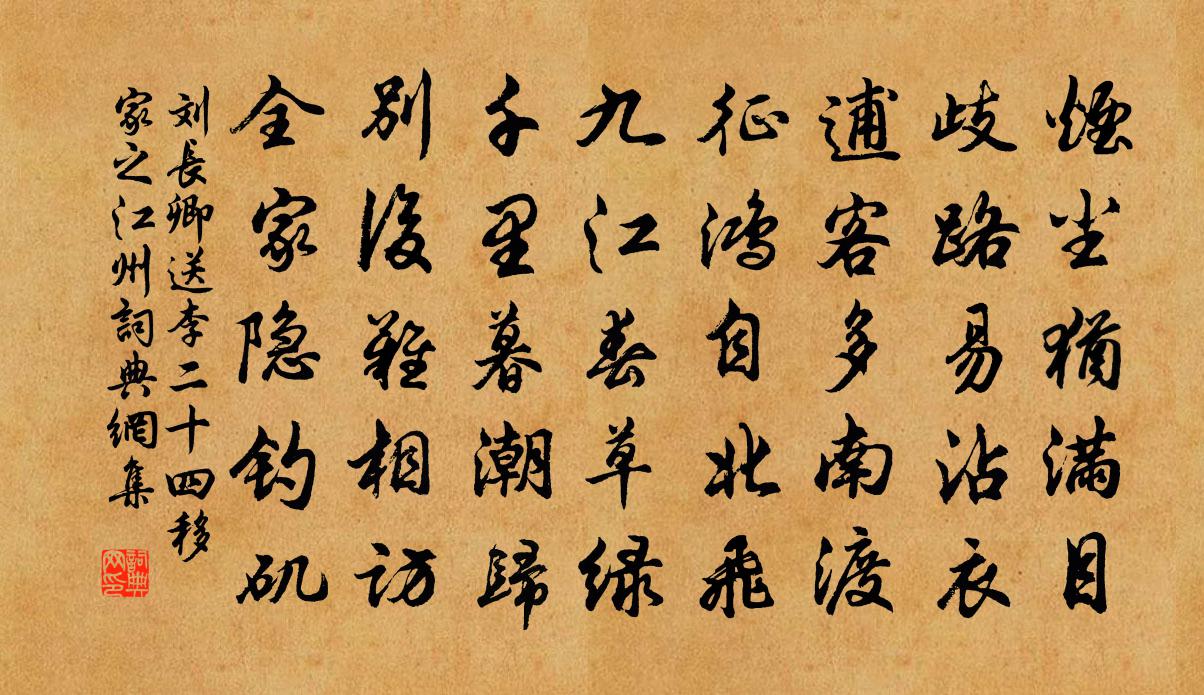 煙尘猶满目
歧路易沾衣
逋客多南渡
征鸿自北飛
九江春草绿
千里暮潮歸
别後難相访
全家隐钓矶
刘長卿送李二十四移
家之江州詞典網集
詞典
网印